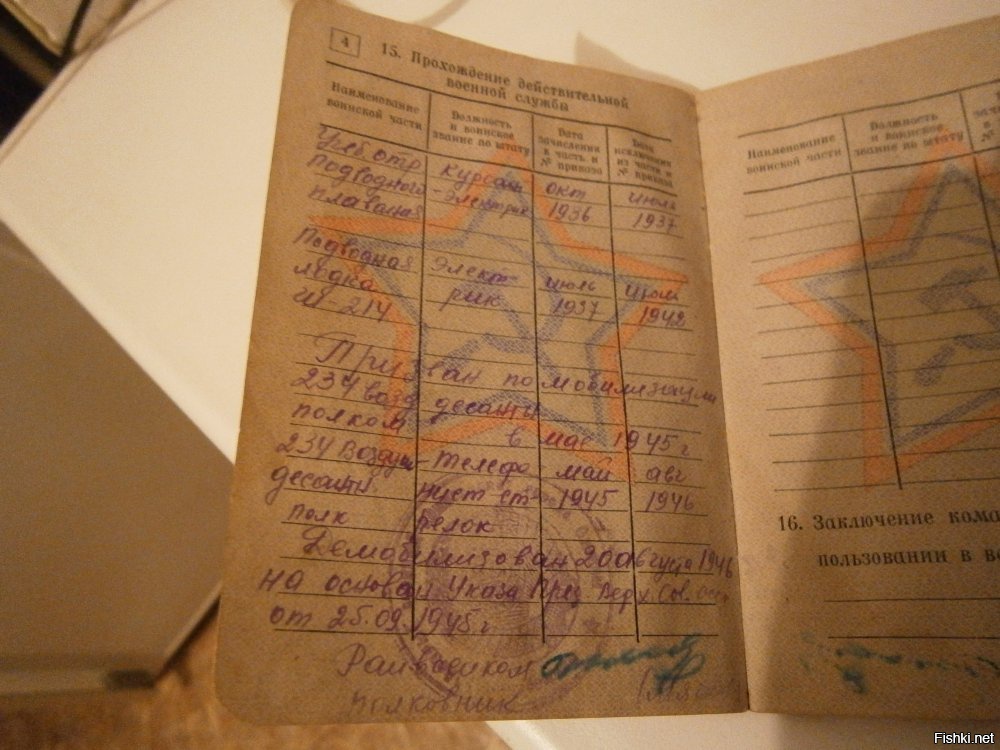 4
15. Прохождение действительной
военной службы
Наименование воинской части
Должность и воинское звание по штату
Дата зачисления в часть и № приказа
Дата исключения из части и № приказа
Учеб отр Курсант окт июль
подводного - электрик 1936 1937
плавания
Подводная Электрик июль июль
лодка 1937 1942
Щ-214
Призван по мобилизации
234 возд десантн
полком в мае 1945 г
234 Воздуш- телефо май авг
десантн. нист ст 1945 1946
полк релок
Демобилизован 20 августа 1946
на основан Указа През Верх. Сов.
от 25.09.1945 г
Райвоенком
полковник
Наименование воинской части
Должность и воинское звание по штату
16. Заключение кома
пользовании в во
Fishki.net